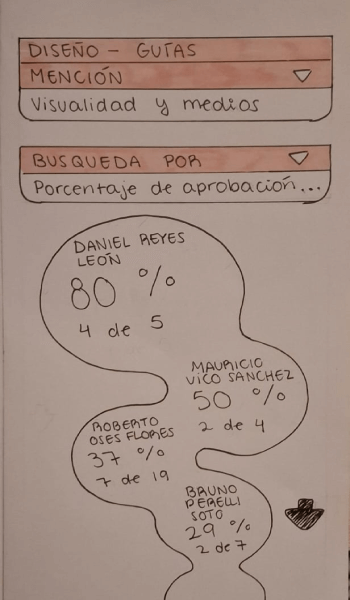 DISEÑO - GUÍAS
MENCIÓN
Visualidad y medios
BUSQUEDA POR
Porcentaje de aprobación...
DANIEL REYES
LEÓN
80 %
4 de 5
MAURICIO
VICO SANCHEZ
50 %
2 de 4
ROBERTO
OSES FLORES
37 %
7 de 19
BRUNO
PERELLI
SOTO
29 %
2 de 7